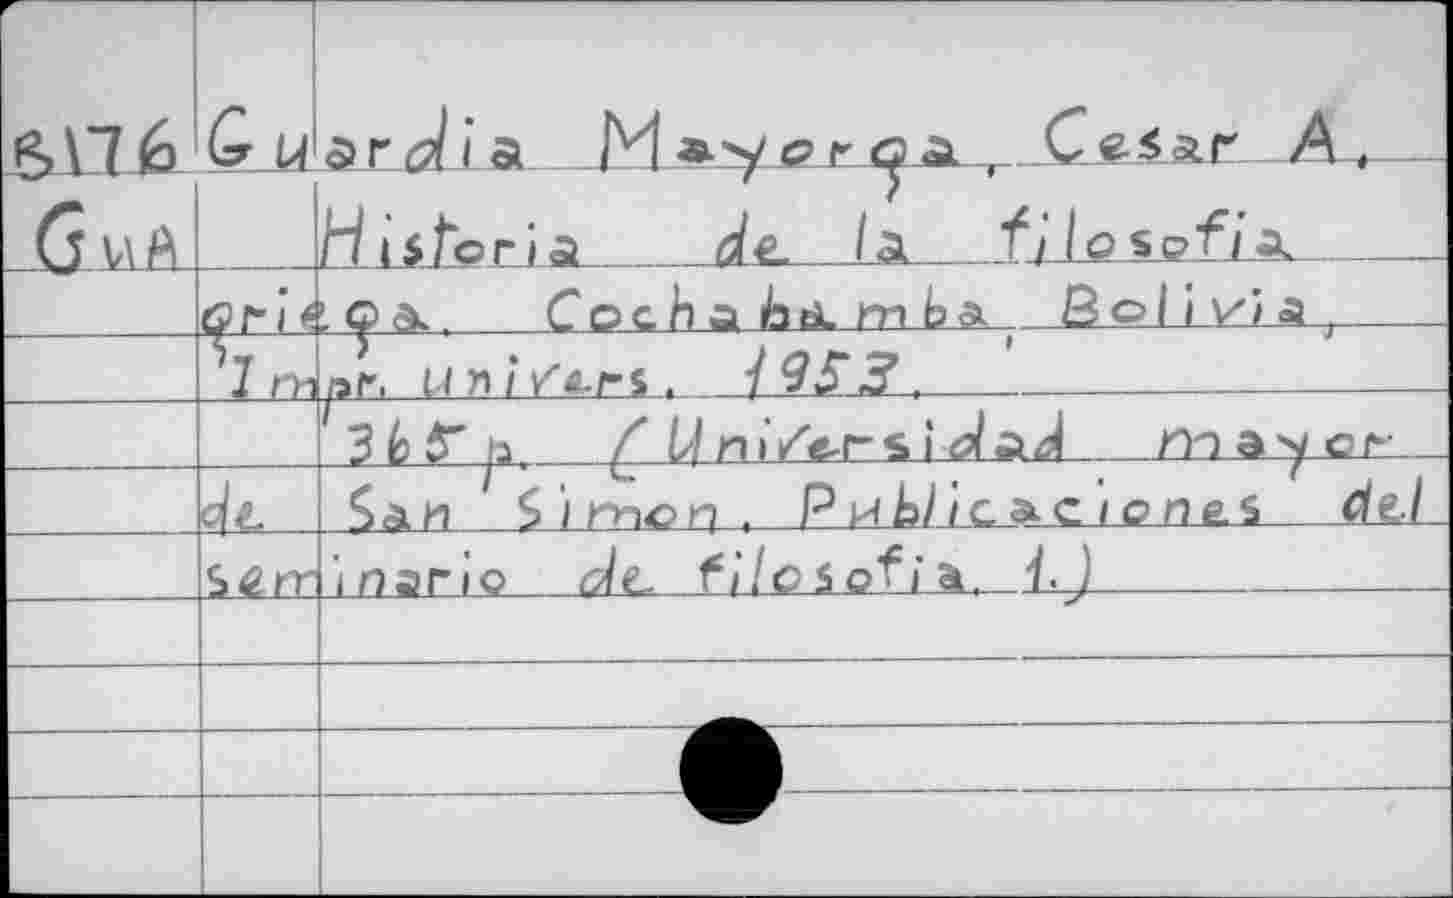 B176 Guardia Mayorga, Cesar A.
GUA Historia de la filosofia
griega. Cochabamba, Bolivia,
Impr. univers. 1953.
365 p. (Universidad mayor
de San Simon. Publicaciones del
seminario de filosofia. 1.)